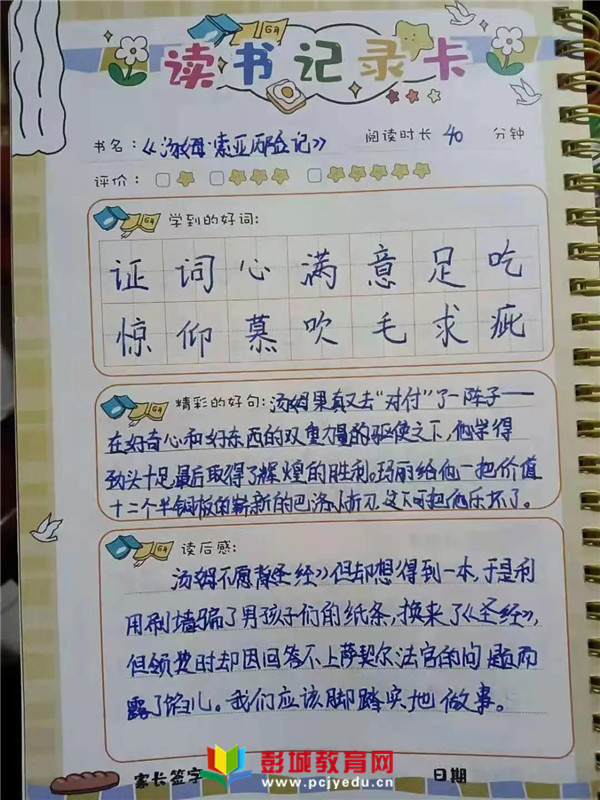 读书记录卡
书名：《汤姆·索亚历险记》 阅读时长 40 分钟
评价：
学到的好词：
证词心满意足吃
惊仰慕吹毛求疵
精彩的好句：汤姆果真又去“对付”了一阵子——
在好奇心和好东西的双重力量的驱使之下，他学得
劲头十足，最后取得了辉煌的胜利。玛丽给他一把价值
十二个半铜板的崭新的巴洛小折刀，这下可把他乐坏了。
读后感：
汤姆不愿背《圣经》但却想得到一本，于是利
用刷墙骗了男孩子们的纸条，换来了《圣经》，
但领奖时却因回答不上萨契尔法官的问题而
露了馅儿。我们应该脚踏实地做事。
家长签字 日期
彭城教育网
www.pcjyedu.cn